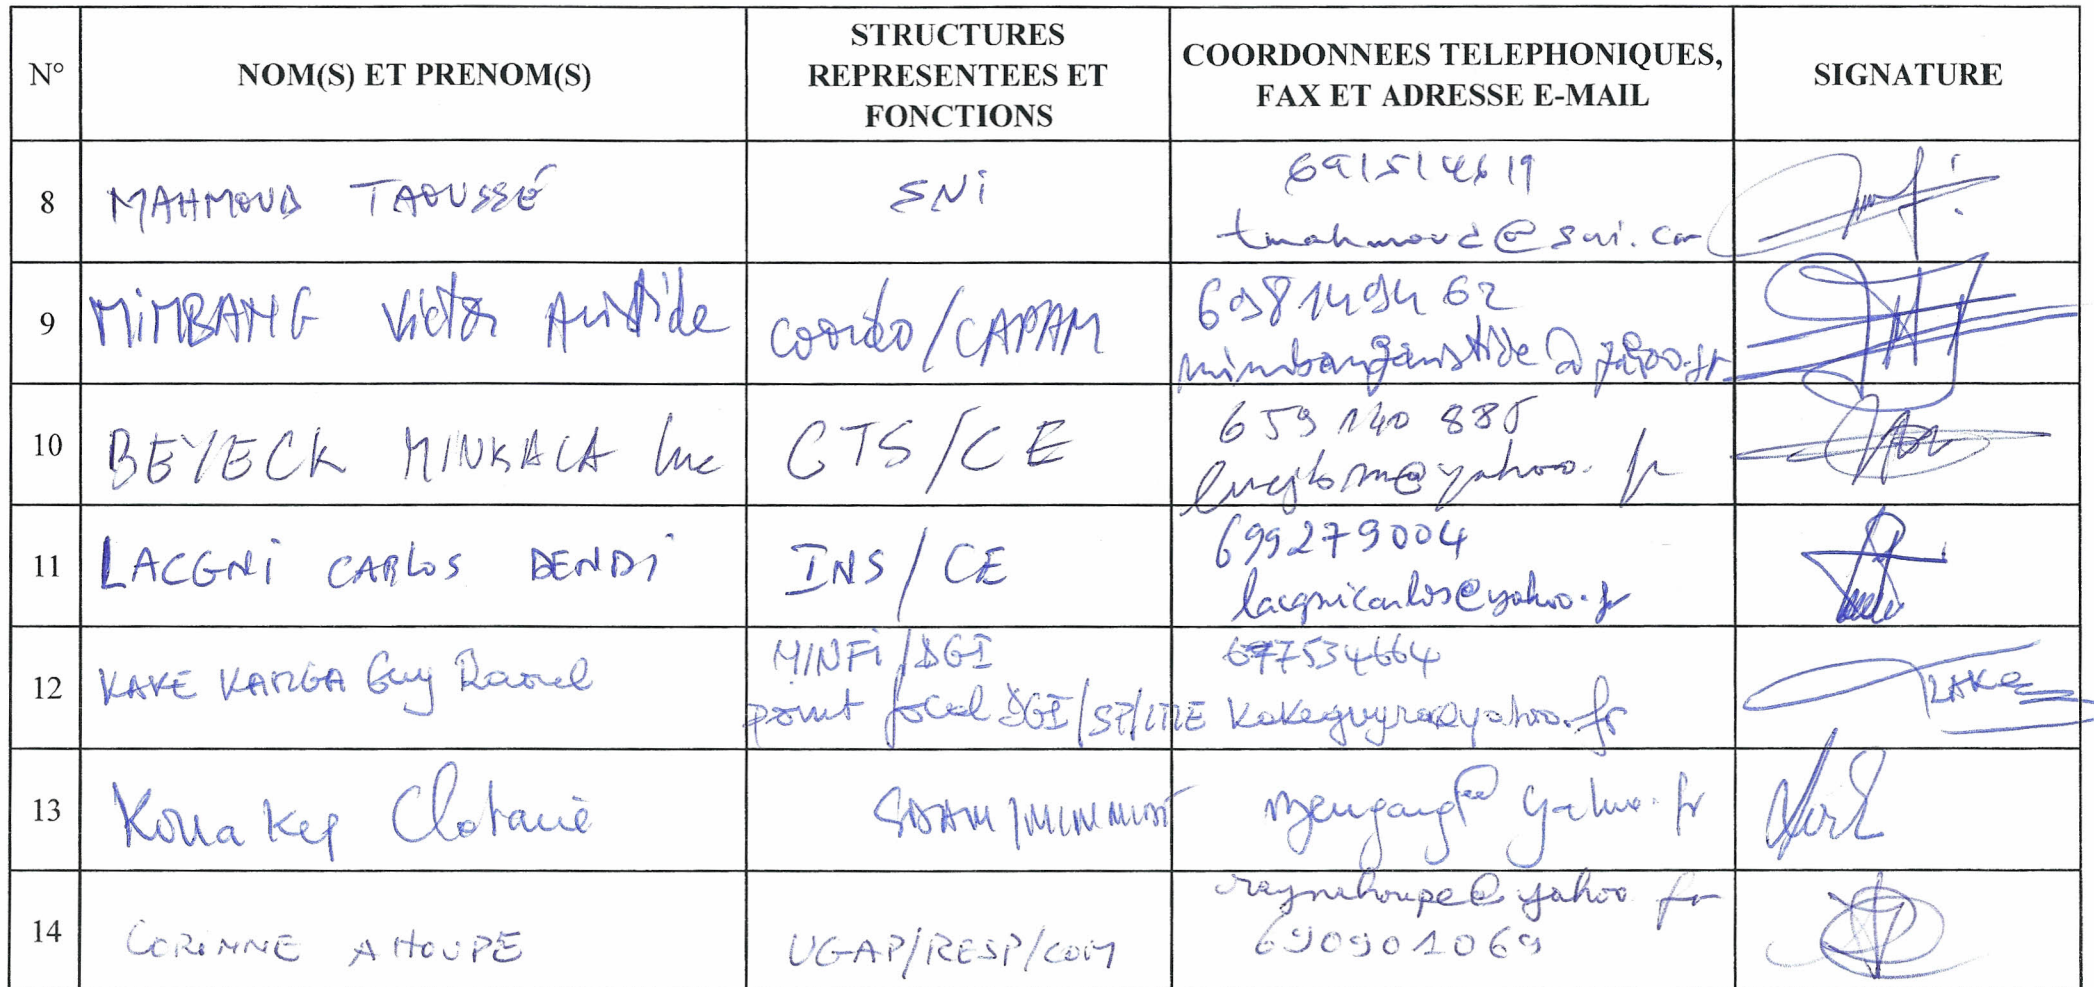 N° NOM(S) ET PRENOM(S) STRUCTURES REPRESENTEES ET FONCTIONS COORDONNEES TELEPHONIQUES, FAX ET ADRESSE E-MAIL SIGNATURE
8 MAHMOUD TAOUSSÉ SNI 691514619
tmahmoud@sni.cm
9 MIMBANG Victor Aristide Coordo/CAPAM 698149462
mimbangaristide@yahoo.fr
10 BEYECK MINKALA Luc CTS/CE 659 140 885
@yahoo.fr
11 LACGNI CARLOS DENDI INS/CE 699279004
lacgnicarlos@yahoo.fr
12 KAKE KAMGA Guy Raoul MINFI/DGI 677534664
point focal DGI/SP/ITIE kakeguyra@yahoo.fr
13 Kouakep Clotaire
@yahoo.fr
14 CORINNE AHOUPE UGAP/RESP/COM raynahoupe@yahoo.fr
690901069